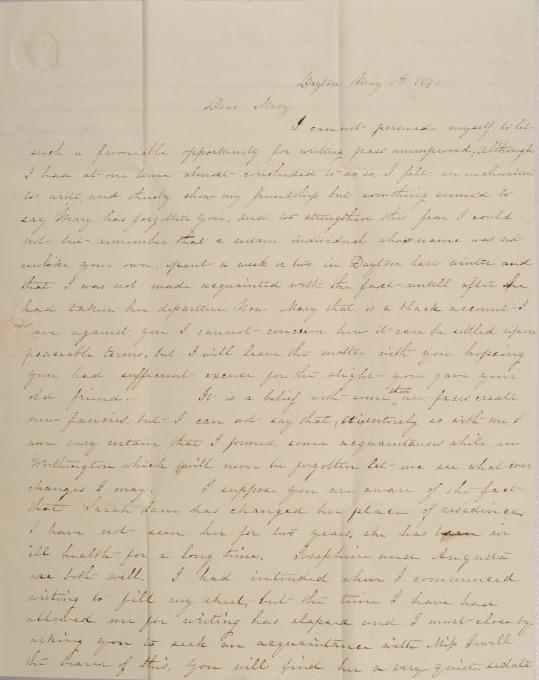 Dayton May 5th 18
Dear Mary
I cannot persuade myself to let
such a favourable opportunity for writing pass unimproved, although
I had at one time almost concluded to so so, I felt an inclination
to write and thereby show my friendship but something seemed to
say Mary has forgotten you, and too strengthen this fear I could
not but remember that a certain individual whose name was not
unlike your own, spent a week or two in Dayton last winter and
that I was not made acquainted with the fact untill after she
had taken her departure. Now Mary that is a black account I
have against you I cannot conceive how it can be settled upon
peaseable terms, but I will leave the matter with you hopeing
you had sufficient excuse for the slight you gave your
old friend. It is a belief with some that new faces create
new fancies, but I can not say that, it is entirely so with me I
am very certain that I formed some acquaintances while in
Worthington which will never be forgotten let me see what ever
changes I may. I suppose you are aware of the fact
that Sarah has changed her place of residence
I have not seen her for two years, she has been in
ill health for a long time. Josephine and Augusta
are both well. I had intended when I commenced
writing to fill my sheet, but the time I have had
allowed me for writing has elapsed and I must close by
asking you to seek an acquaintance with Miss Jewell
the bearer of this. You will find her a very quiet, sedate